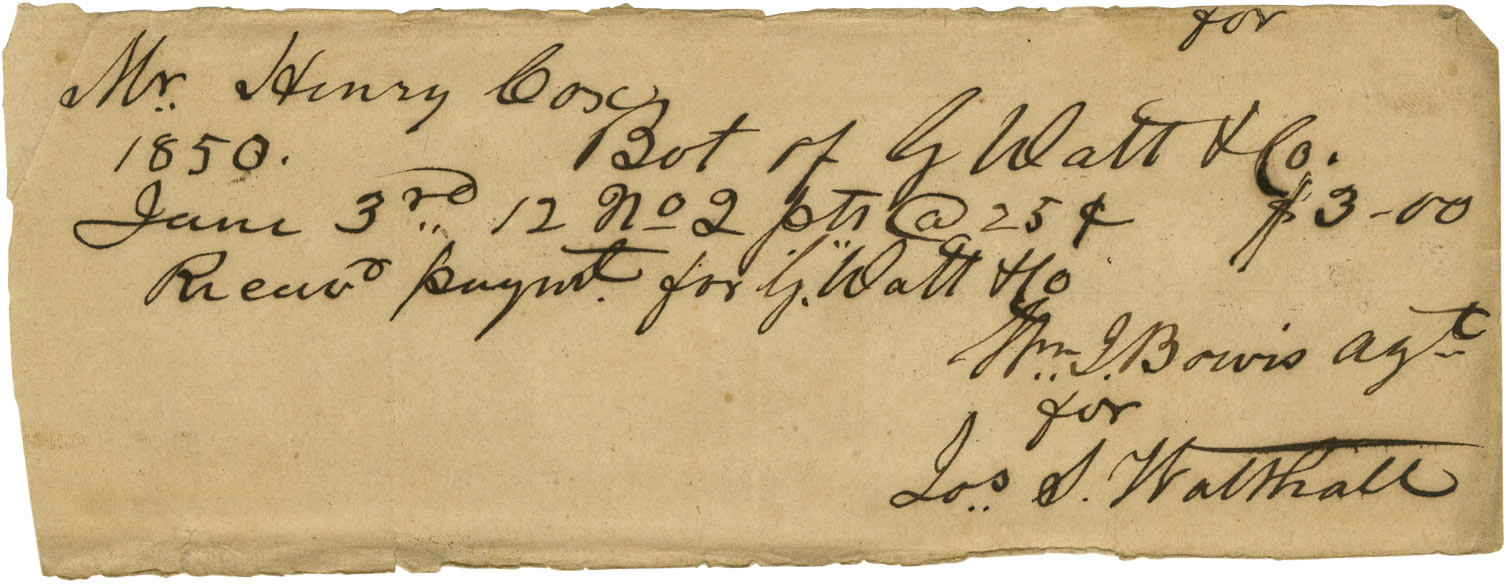 for
Mr. Henry Cox
1850. Bot of G Watt & Co.
June 3rd 12 No 2 pts @ 25 ¢ $3-00
Recevd paymt. for G. Watt & Co
Wm. I. Bowis Agt
for
Jos. S. Walthall